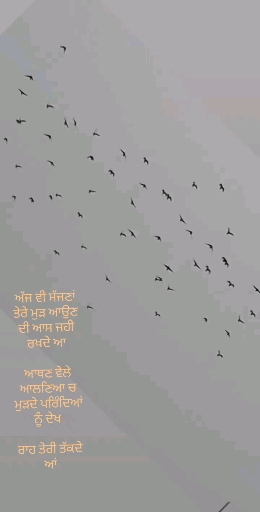 ਅੱਜ ਵੀ ਸੱਜਣਾਂ
ਤੇਰੇ ਮੁੜ ਆਉਣ
ਦੀ ਆਸ ਜਹੀ
ਰਖਦੇ ਆ
ਆਥਣ ਵੇਲੇ
ਆਲਣਿਆ ਚ
ਮੁੜਦੇ ਪਰਿੰਦਿਆਂ
ਨੂੰ ਦੇਖ
ਰਾਹ ਤੇਰੀ ਤੱਕਦੇ
ਆਂ